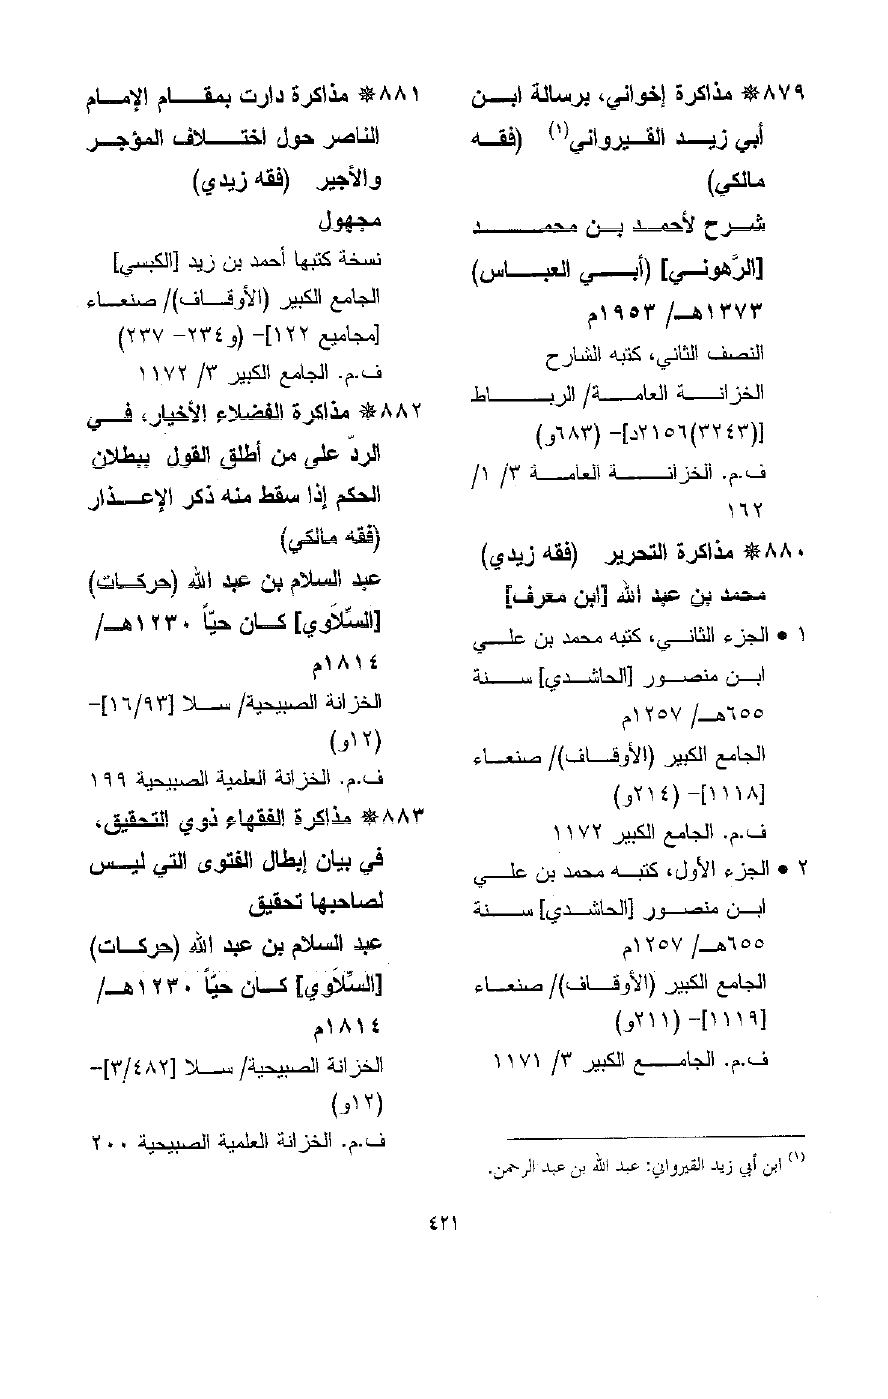 ٨٧٩* مذاكرة إخواني، برسالة ابن
أبي زيد القيرواني(١) (فقه
مالكي)
شرح لأحمد بن محمد
[الرَّهوني] (أبي العباس)
١٣٧٣هـ/ ١٩٥٣م
النصف الثاني، كتبه الشارح
الخزانة العامة/ الرباط
[(٣٢٤٣)٢١٥٦د]- (٦٨٣و)
ف.م. الخزانة العامة ٣/ ١/
١٦٢
٨٨٠* مذاكرة التحرير (فقه زيدي)
محمد بن عبد الله [ابن معرف]
١ • الجزء الثاني، كتبه محمد بن علي
ابن منصور [الحاشدي] سنة
٦٥٥هـ/ ١٢٥٧م
الجامع الكبير (الأوقاف)/ صنعاء
[١١١٨]- (٢١٤و)
ف.م. الجامع الكبير ١١٧٢
٢ • الجزء الأول، كتبه محمد بن علي
ابن منصور [الحاشدي] سنة
٦٥٥هـ/ ١٢٥٧م
الجامع الكبير (الأوقاف)/ صنعاء
[١١١٩]- (٢١١و)
ف.م. الجامع الكبير ٣/ ١١٧١
(١) ابن أبي زيد القيرواني: عبد الله بن عبد الرحمن.
٨٨١* مذاكرة دارت بمقام الإمام
الناصر حول اختلاف المؤجر
والأجير (فقه زيدي)
مجهول
نسخة كتبها أحمد بن زيد [الكبسي]
الجامع الكبير (الأوقاف)/ صنعاء
[مجاميع ١٢٢]- (و٢٣٤- ٢٣٧)
ف.م. الجامع الكبير ٣/ ١١٧٢
٨٨٢* مذاكرة الفضلاء الأخيار، في
الردّ على من أطلق القول ببطلان
الحكم إذا سقط منه ذكر الإعذار
(فقه مالكي)
عبد السلام بن عبد الله (حركات)
[السِّلاَوي] كان حيّاً ١٢٣٠هـ/
١٨١٤م
الخزانة الصبيحية/ سلا [١٦/٩٣]-
(١٢و)
ف.م. الخزانة العلمية الصبيحية ١٩٩
٨٨٣* مذاكرة الفقهاء ذوي التحقيق،
في بيان إبطال الفتوى التي ليس
لصاحبها تحقيق
عبد السلام بن عبد الله (حركات)
[السِّلاَوي] كان حيّاً ١٢٣٠هـ/
١٨١٤م
الخزانة الصبيحية/ سلا [٣/٤٨٢]-
(١٢و)
ف.م. الخزانة العلمية الصبيحية ٢٠٠
٤٢١